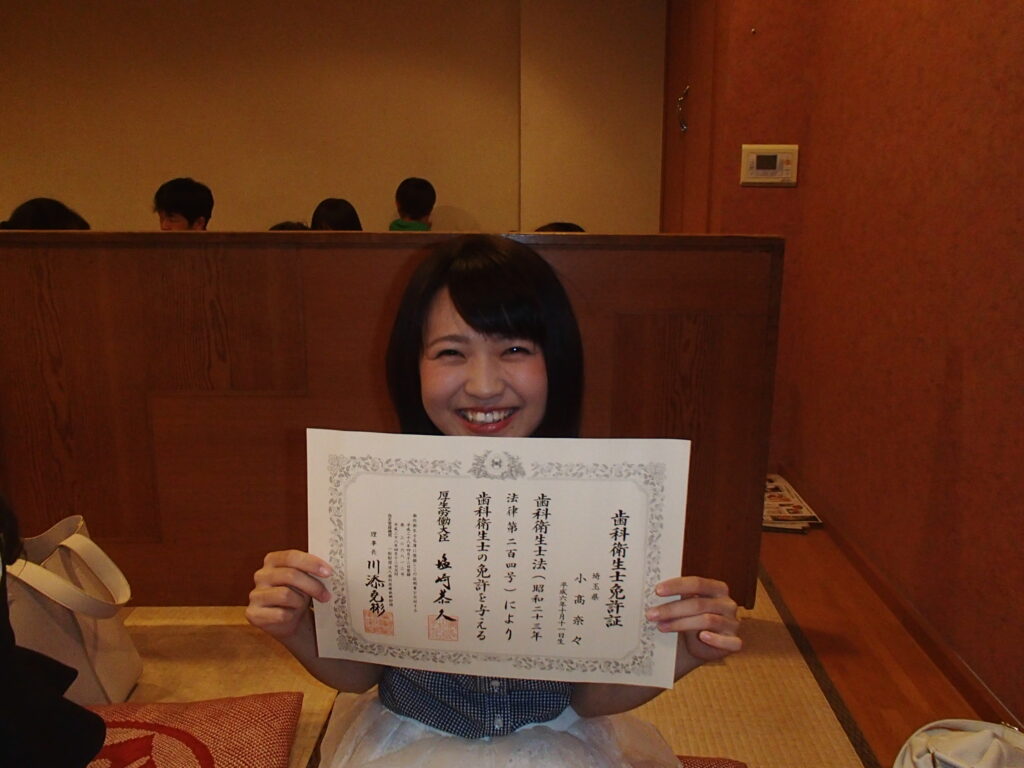 歯科衛生士免許証
埼玉県
小高奈々
平成六年十月十一日生
歯科衛生士法（昭和二十三年
法律第二百四号）により
歯科衛生士の免許を与える
厚生労働大臣 塩崎恭久
理事長